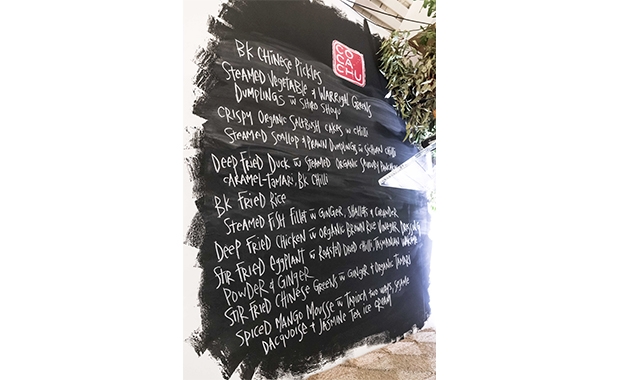 CO
CA
CHU
BK CHINESE PICKLES
STEAMED VEGETABLE & WARRIGAL GREENS
DUMPLINGS w SHIRO SHOYU
CRISPY ORGANIC SALTBUSH CAKES w CHILLI
STEAMED SCALLOP & PRAWN DUMPLINGS w SICHUAN CHILLI
DEEP FRIED DUCK w STEAMED ORGANIC SPROUTED PANCAKES
CARAMEL-TAMARI, BK CHILLI
BK FRIED RICE
STEAMED FISH FILLET w GINGER, SHALLOTS & CORIANDER
DEEP FRIED CHICKEN w ORGANIC BROWN RICE VINEGAR DRESSING
STIR FRIED EGGPLANT w ROASTED DRIED CHILLI, TASMANIAN WAKAME
POWDER & GINGER
STIR FRIED CHINESE GREENS w GINGER & ORGANIC TAMARI
SPICED MANGO MOUSSE w TAPIOCA TWO WAYS, SESAME
DACQUOISE & JASMINE TEA ICE CREAM